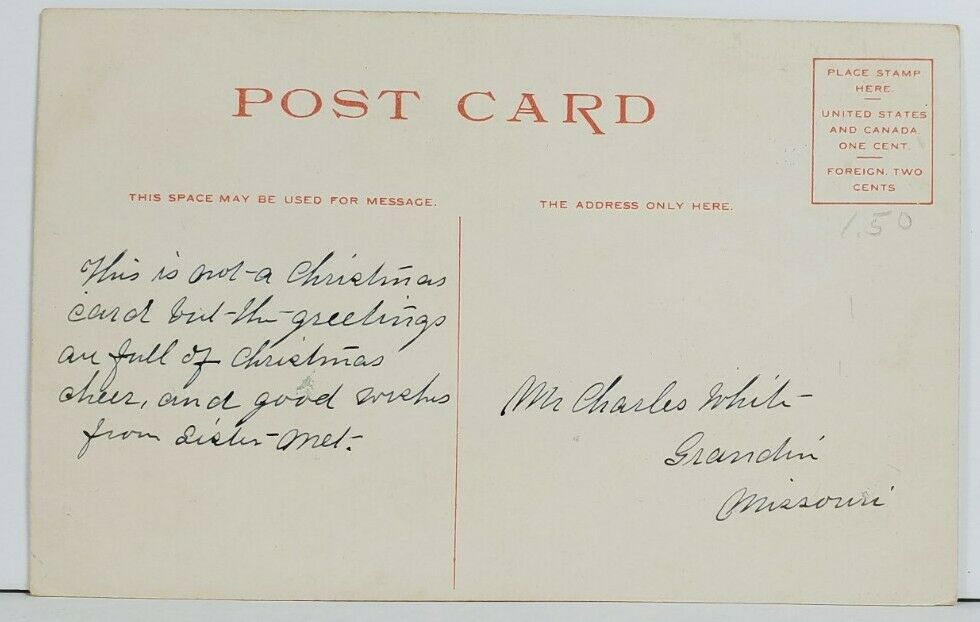 POST CARD
PLACE STAMP
HERE.
UNITED STATES
AND CANADA
ONE CENT.
FOREIGN. TWO
CENTS
1.50
THIS SPACE MAY BE USED FOR MESSAGE.
THE ADDRESS ONLY HERE.
This is not a Christmas
card but the greetings
are full of Christmas
cheer, and good wishes
from Sister Met.
Mr Charles White
Grandin
Missouri